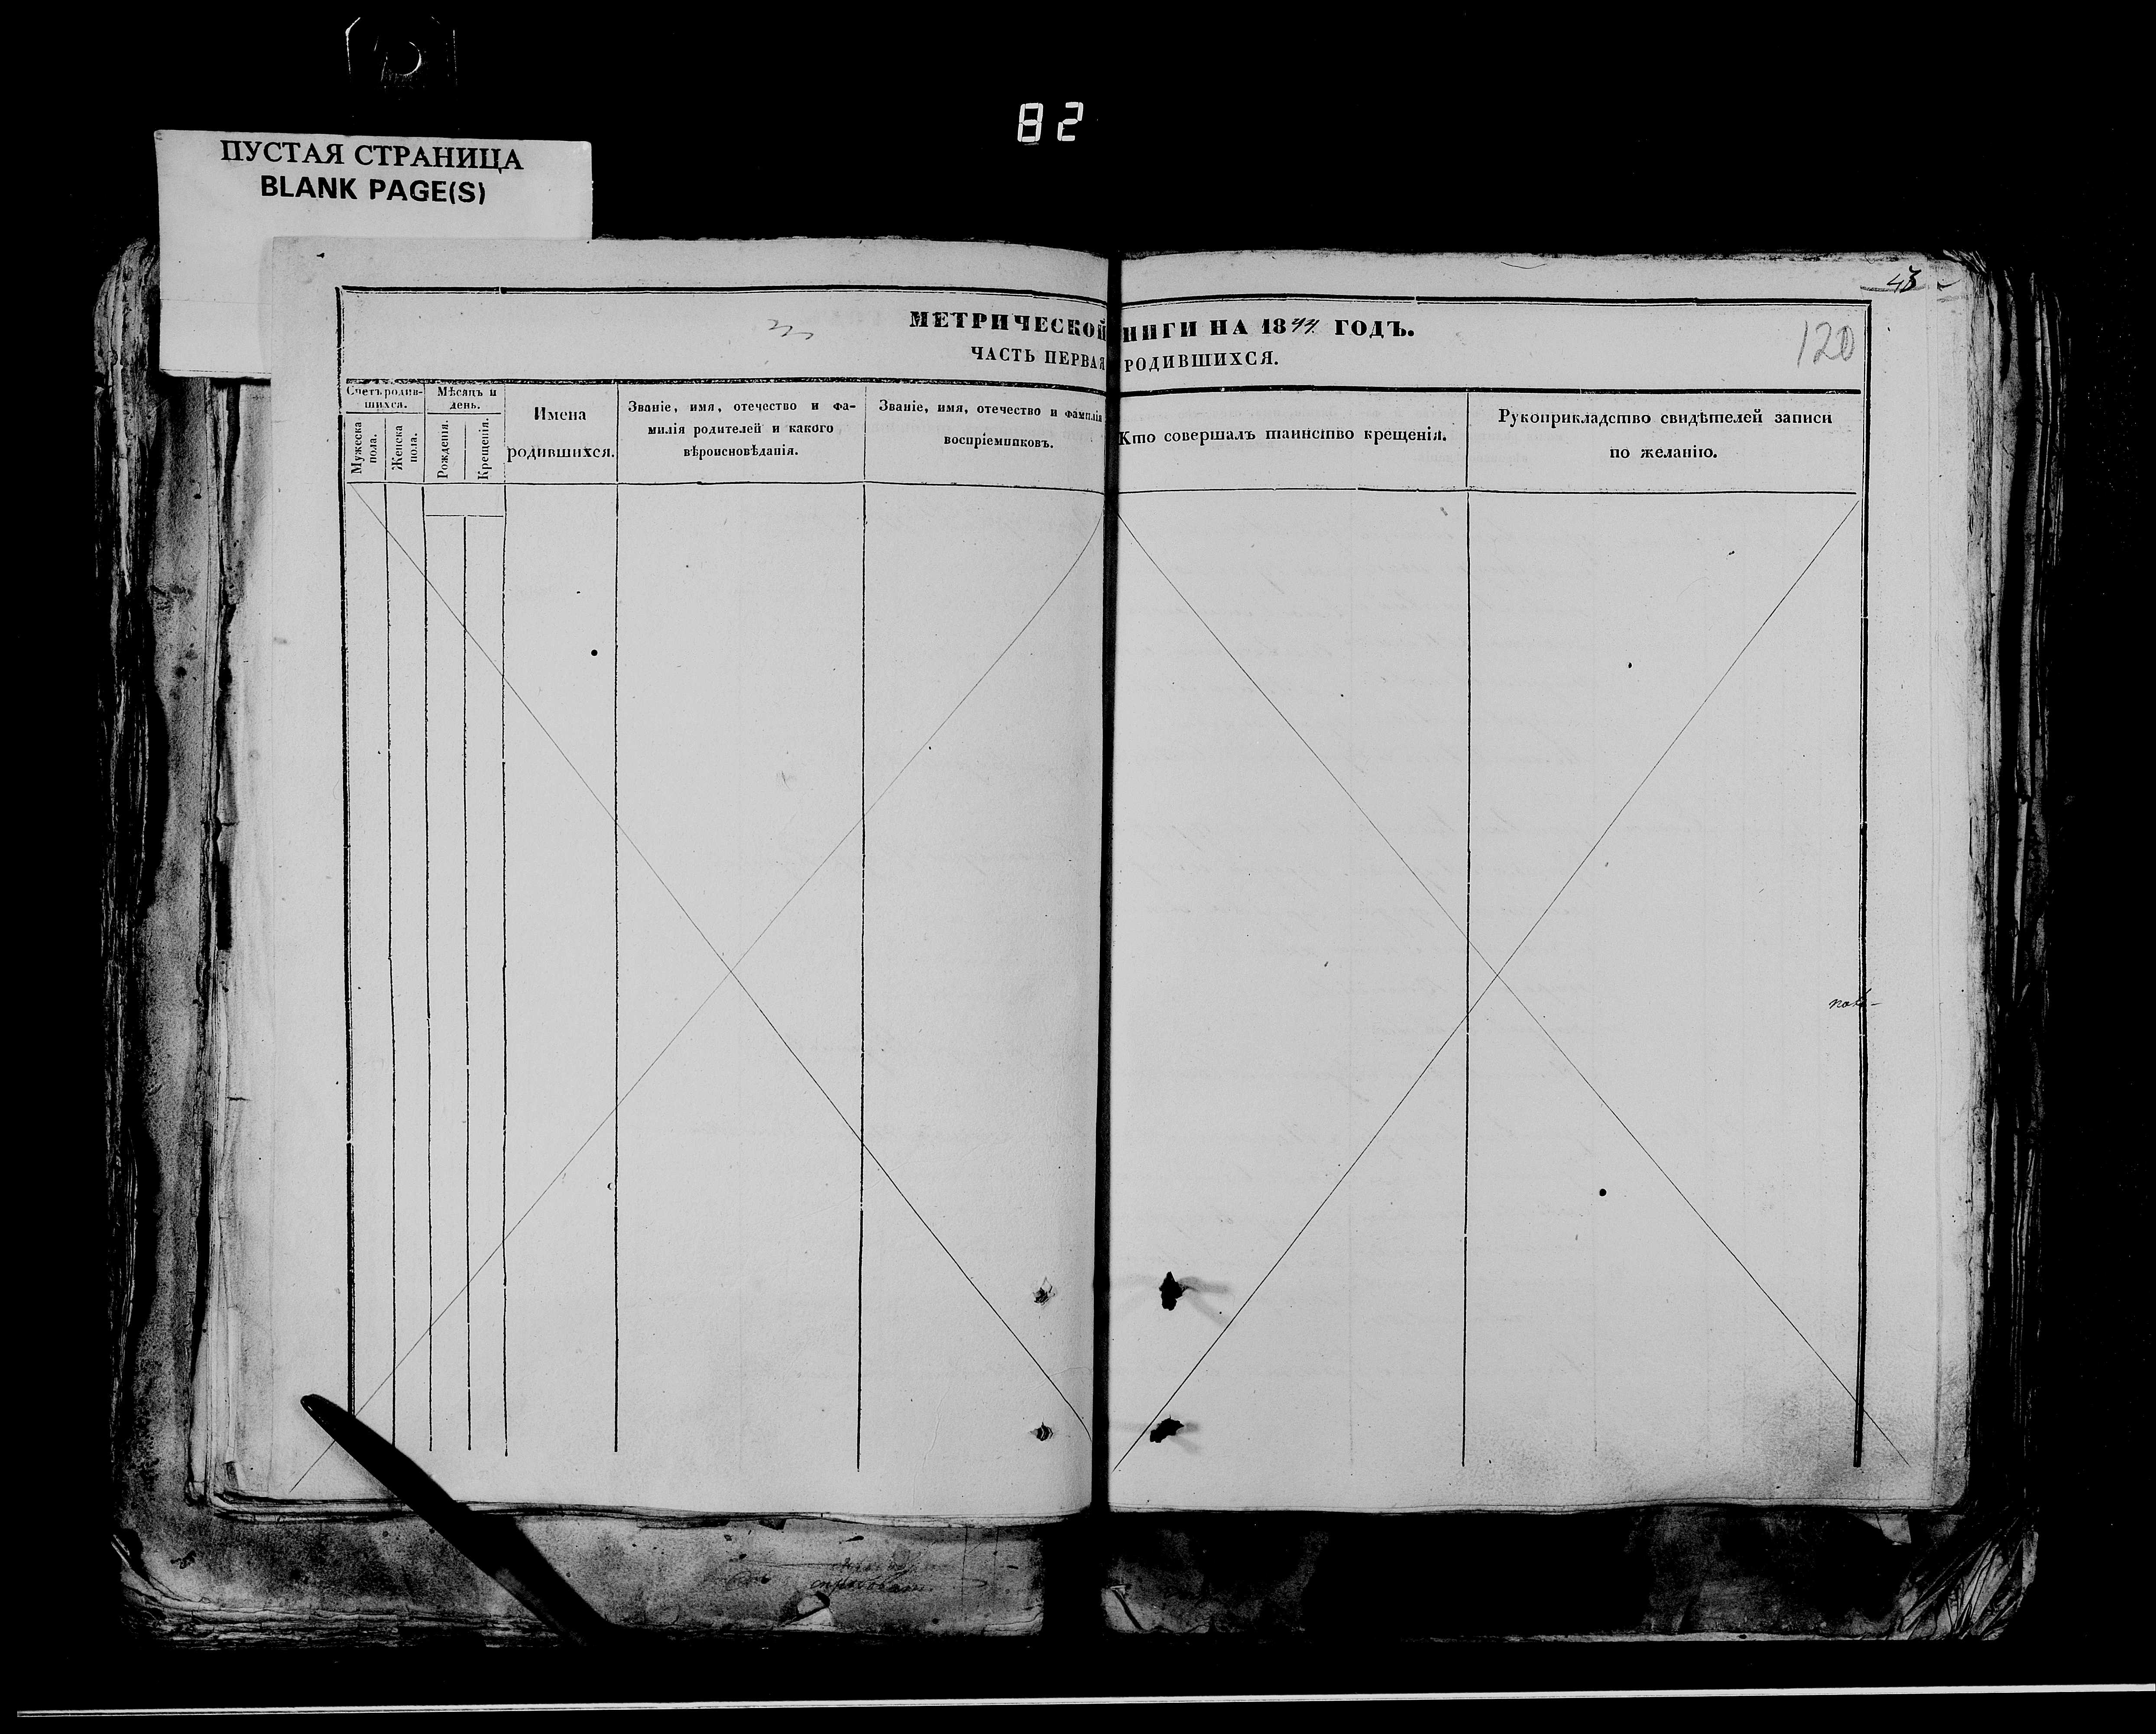 82
ПУСТАЯ СТРАНИЦА
BLANK PAGE(S)
43
120
МЕТРИЧЕСКОЙ НИГИ НА 1844 ГОДЪ.
ЧАСТЬ ПЕРВАЯ РОДИВШИХСЯ.
Счетъ родив-
шихся.
Мужеска
пола.
Женска
пола.
Мѣсяцъ и
день.
Рожденія.
Крещенія.
Имена
родившихся.
Званіе, имя, отечество и фа-
милія родителей и какого
вѣроисновѣданія.
Званіе, имя, отечество и фамилія
воспріемниковъ.
Кто совершалъ таинство крещенія.
Рукоприкладство свидѣтелей записи
по желанію.